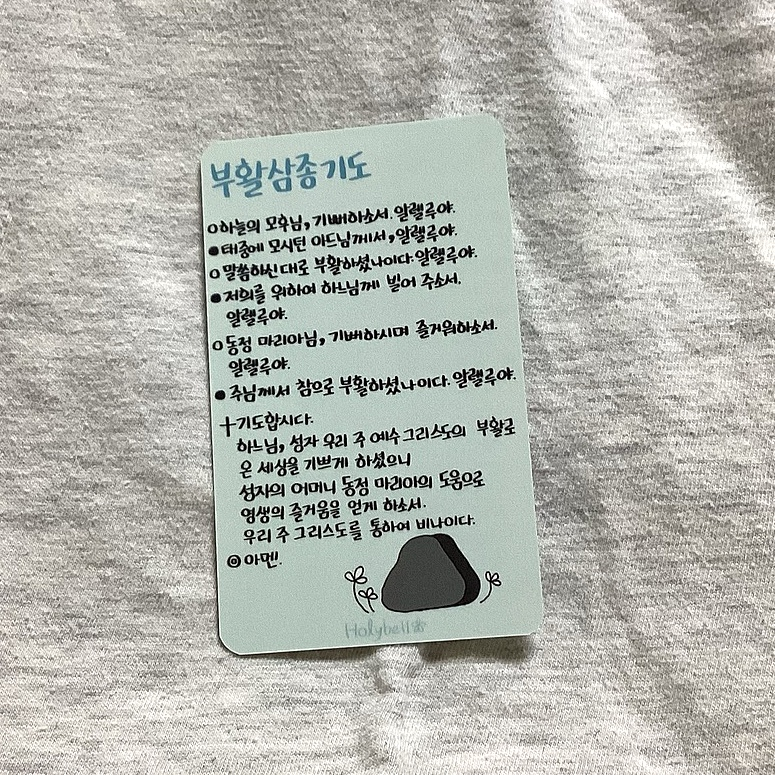 부활삼종기도
○하늘의 모후님, 기뻐하소서. 알렐루야.
●태중에 모시던 아드님께서, 알렐루야.
○말씀하신 대로 부활하셨나이다. 알렐루야.
●저희를 위하여 하느님께 빌어 주소서.
알렐루야.
○동정 마리아님, 기뻐하시며 즐거워하소서.
알렐루야.
●주님께서 참으로 부활하셨나이다. 알렐루야.
†기도합시다.
하느님, 성자 우리 주 예수그리스도의 부활로
온 세상을 기쁘게 하셨으니
성자의 어머니 동정 마리아의 도움으로
영생의 즐거움을 얻게 하소서.
우리 주 그리스도를 통하여 비나이다.
◎아멘.
Holybell